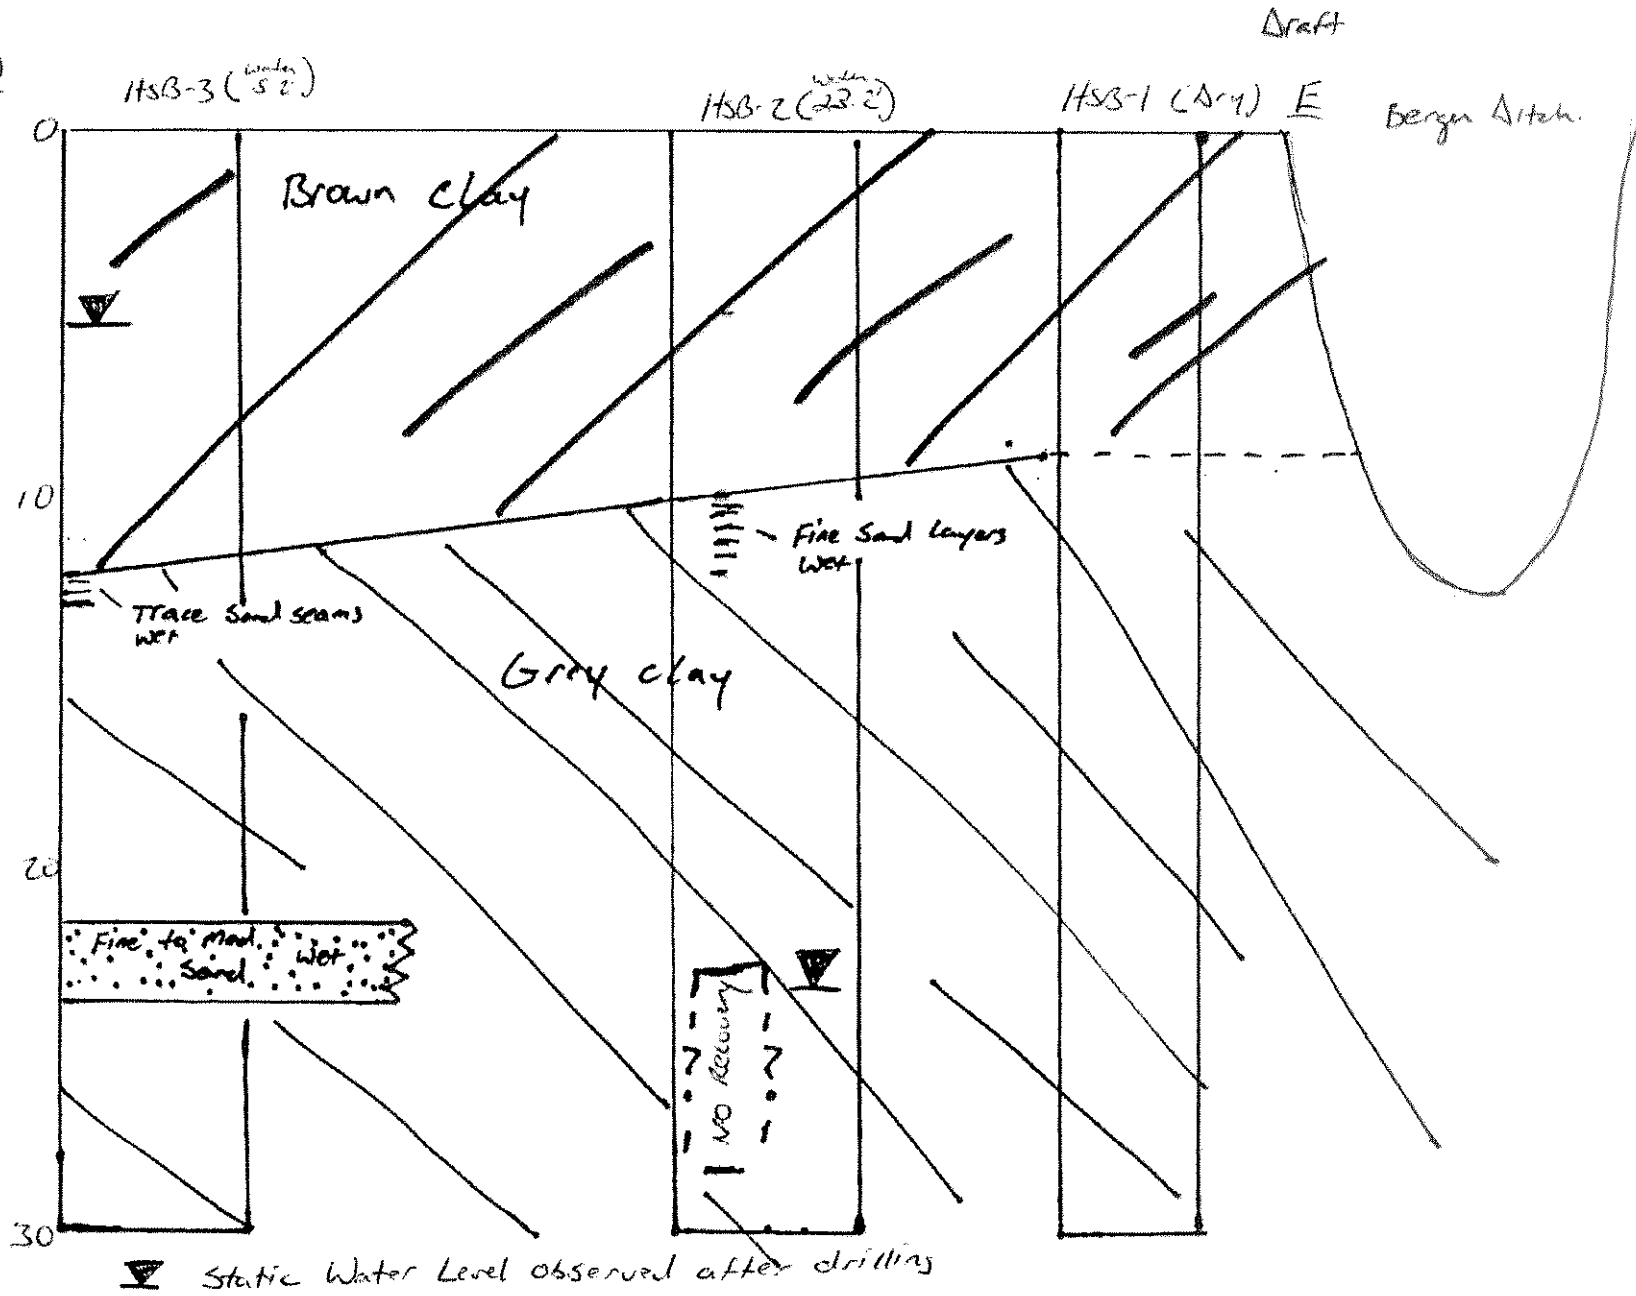 Draft
HSB-3 (Water 5 2')
HSB-2 (Water 23.2')
HSB-1 (Dry)
E
Berger Ditch.
0
Brown Clay
10
Fine Sand Layers
Wet
Trace Sand seams
wet
Grey clay
20
Fine to Med. Wet
Sand
No Recovery
?
?
30
Static Water Level observed after drilling